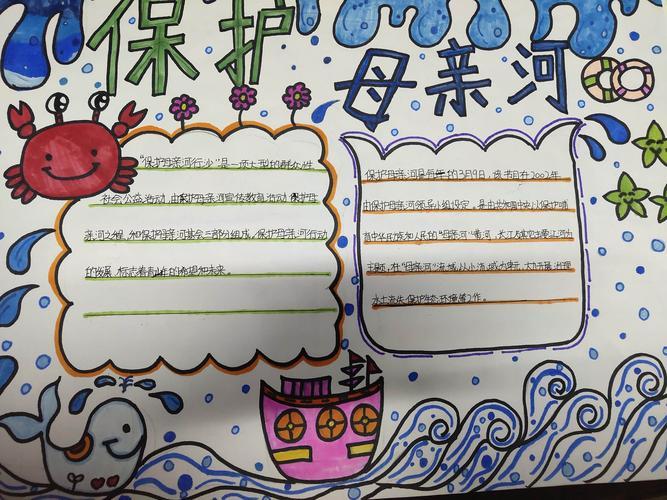 保护
母亲河
"保护母亲河行动"是一项大型的群众性
社会公益活动,由保护母亲河宣传教育活动、保护母
亲河工程,和保护母亲河基金三部分组成,保护母亲河行动
的发展,标志着青年的希望和未来。
保护母亲河是每年的3月9日,该节日在2002年
由保护母亲河领导小组设定,是由共青团中央以保护哺
育中华民族和人民的"母亲河"黄河、长江及其它主要江河为
主题,在"母亲河"流域以小流域为单元,大力开展治理
水土流失、保护生态环境等工作。